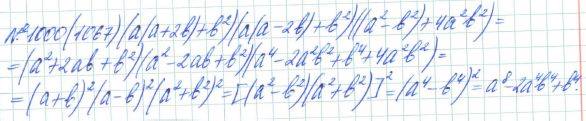 №1000(1067)(a(a+2b)+b²)(a(a-2b)+b²)((a²-b²)+4a²b²)=
=(a²+2ab+b²)(a²-2ab+b²)(a⁴-2a²b²+b⁴+4a²b²)=
=(a+b)²(a-b)²(a²+b²)²=[(a²-b²)(a²+b²)]²=(a⁴-b⁴)²=a⁸-2a⁴b⁴+b⁴.